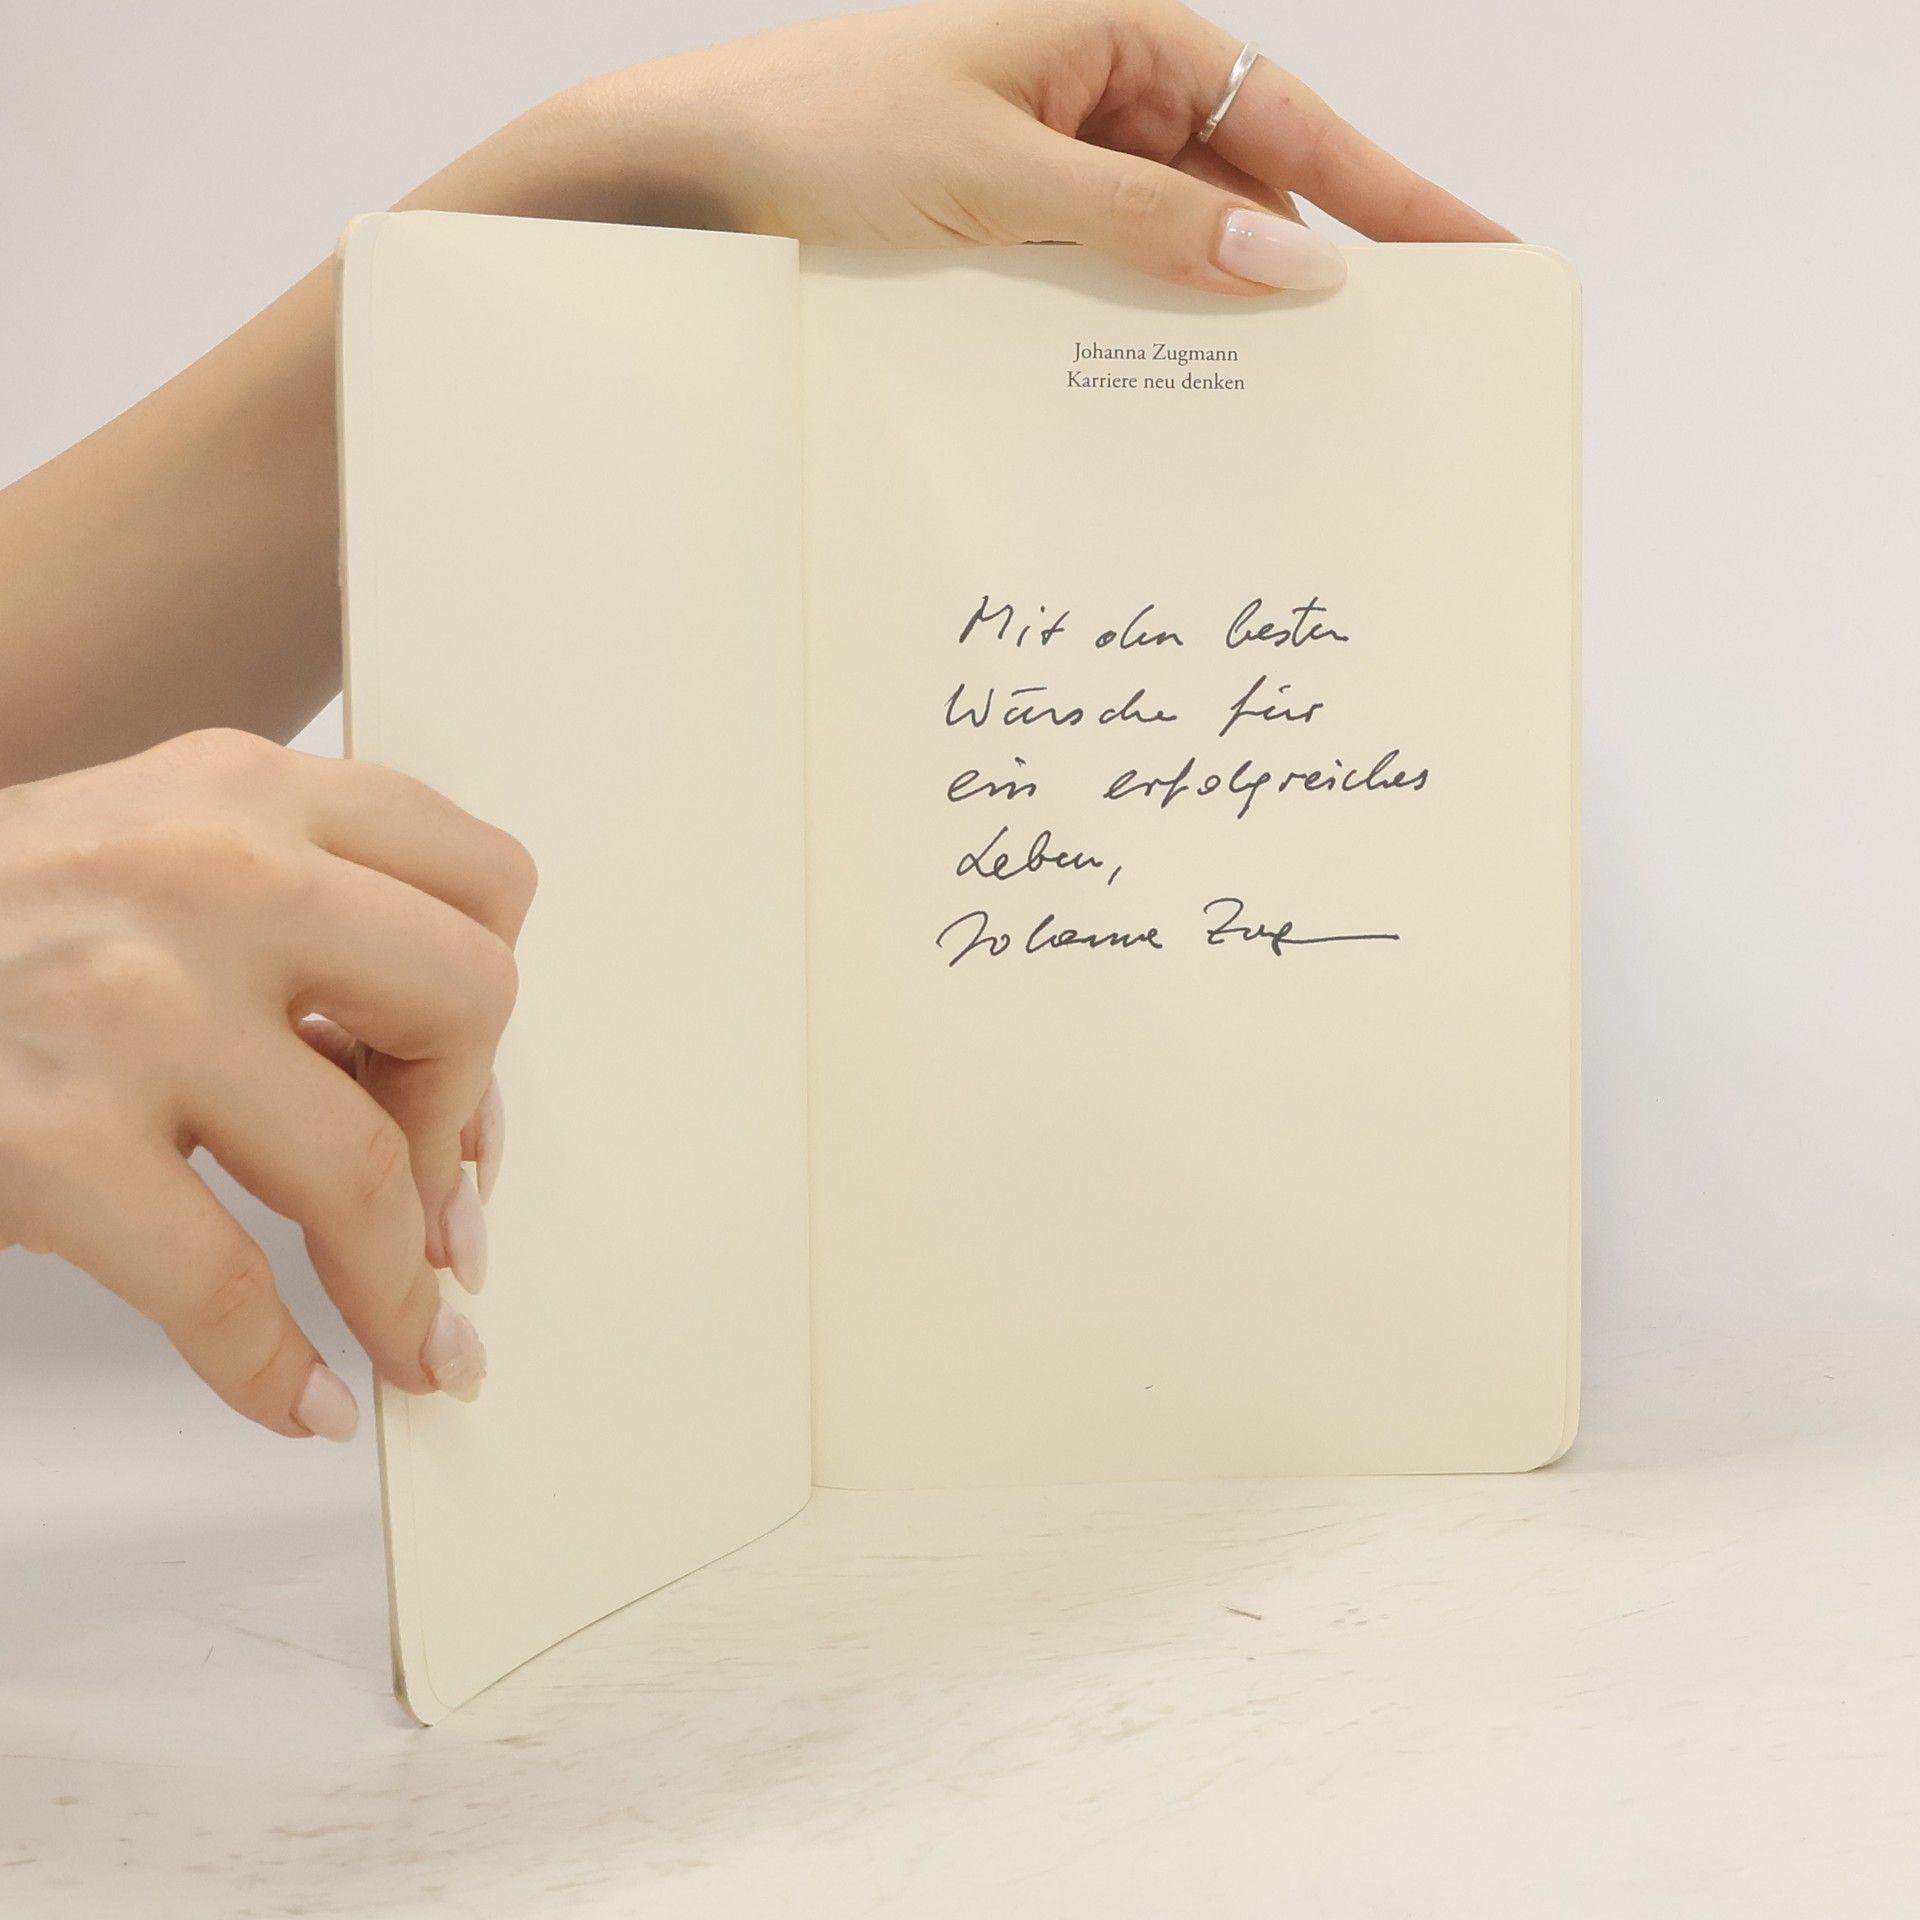 Johanna Zugmann
Karriere neu denken
Mit den besten
Wünsche für
ein erfolgreiches
Leben,
Johanna Zug